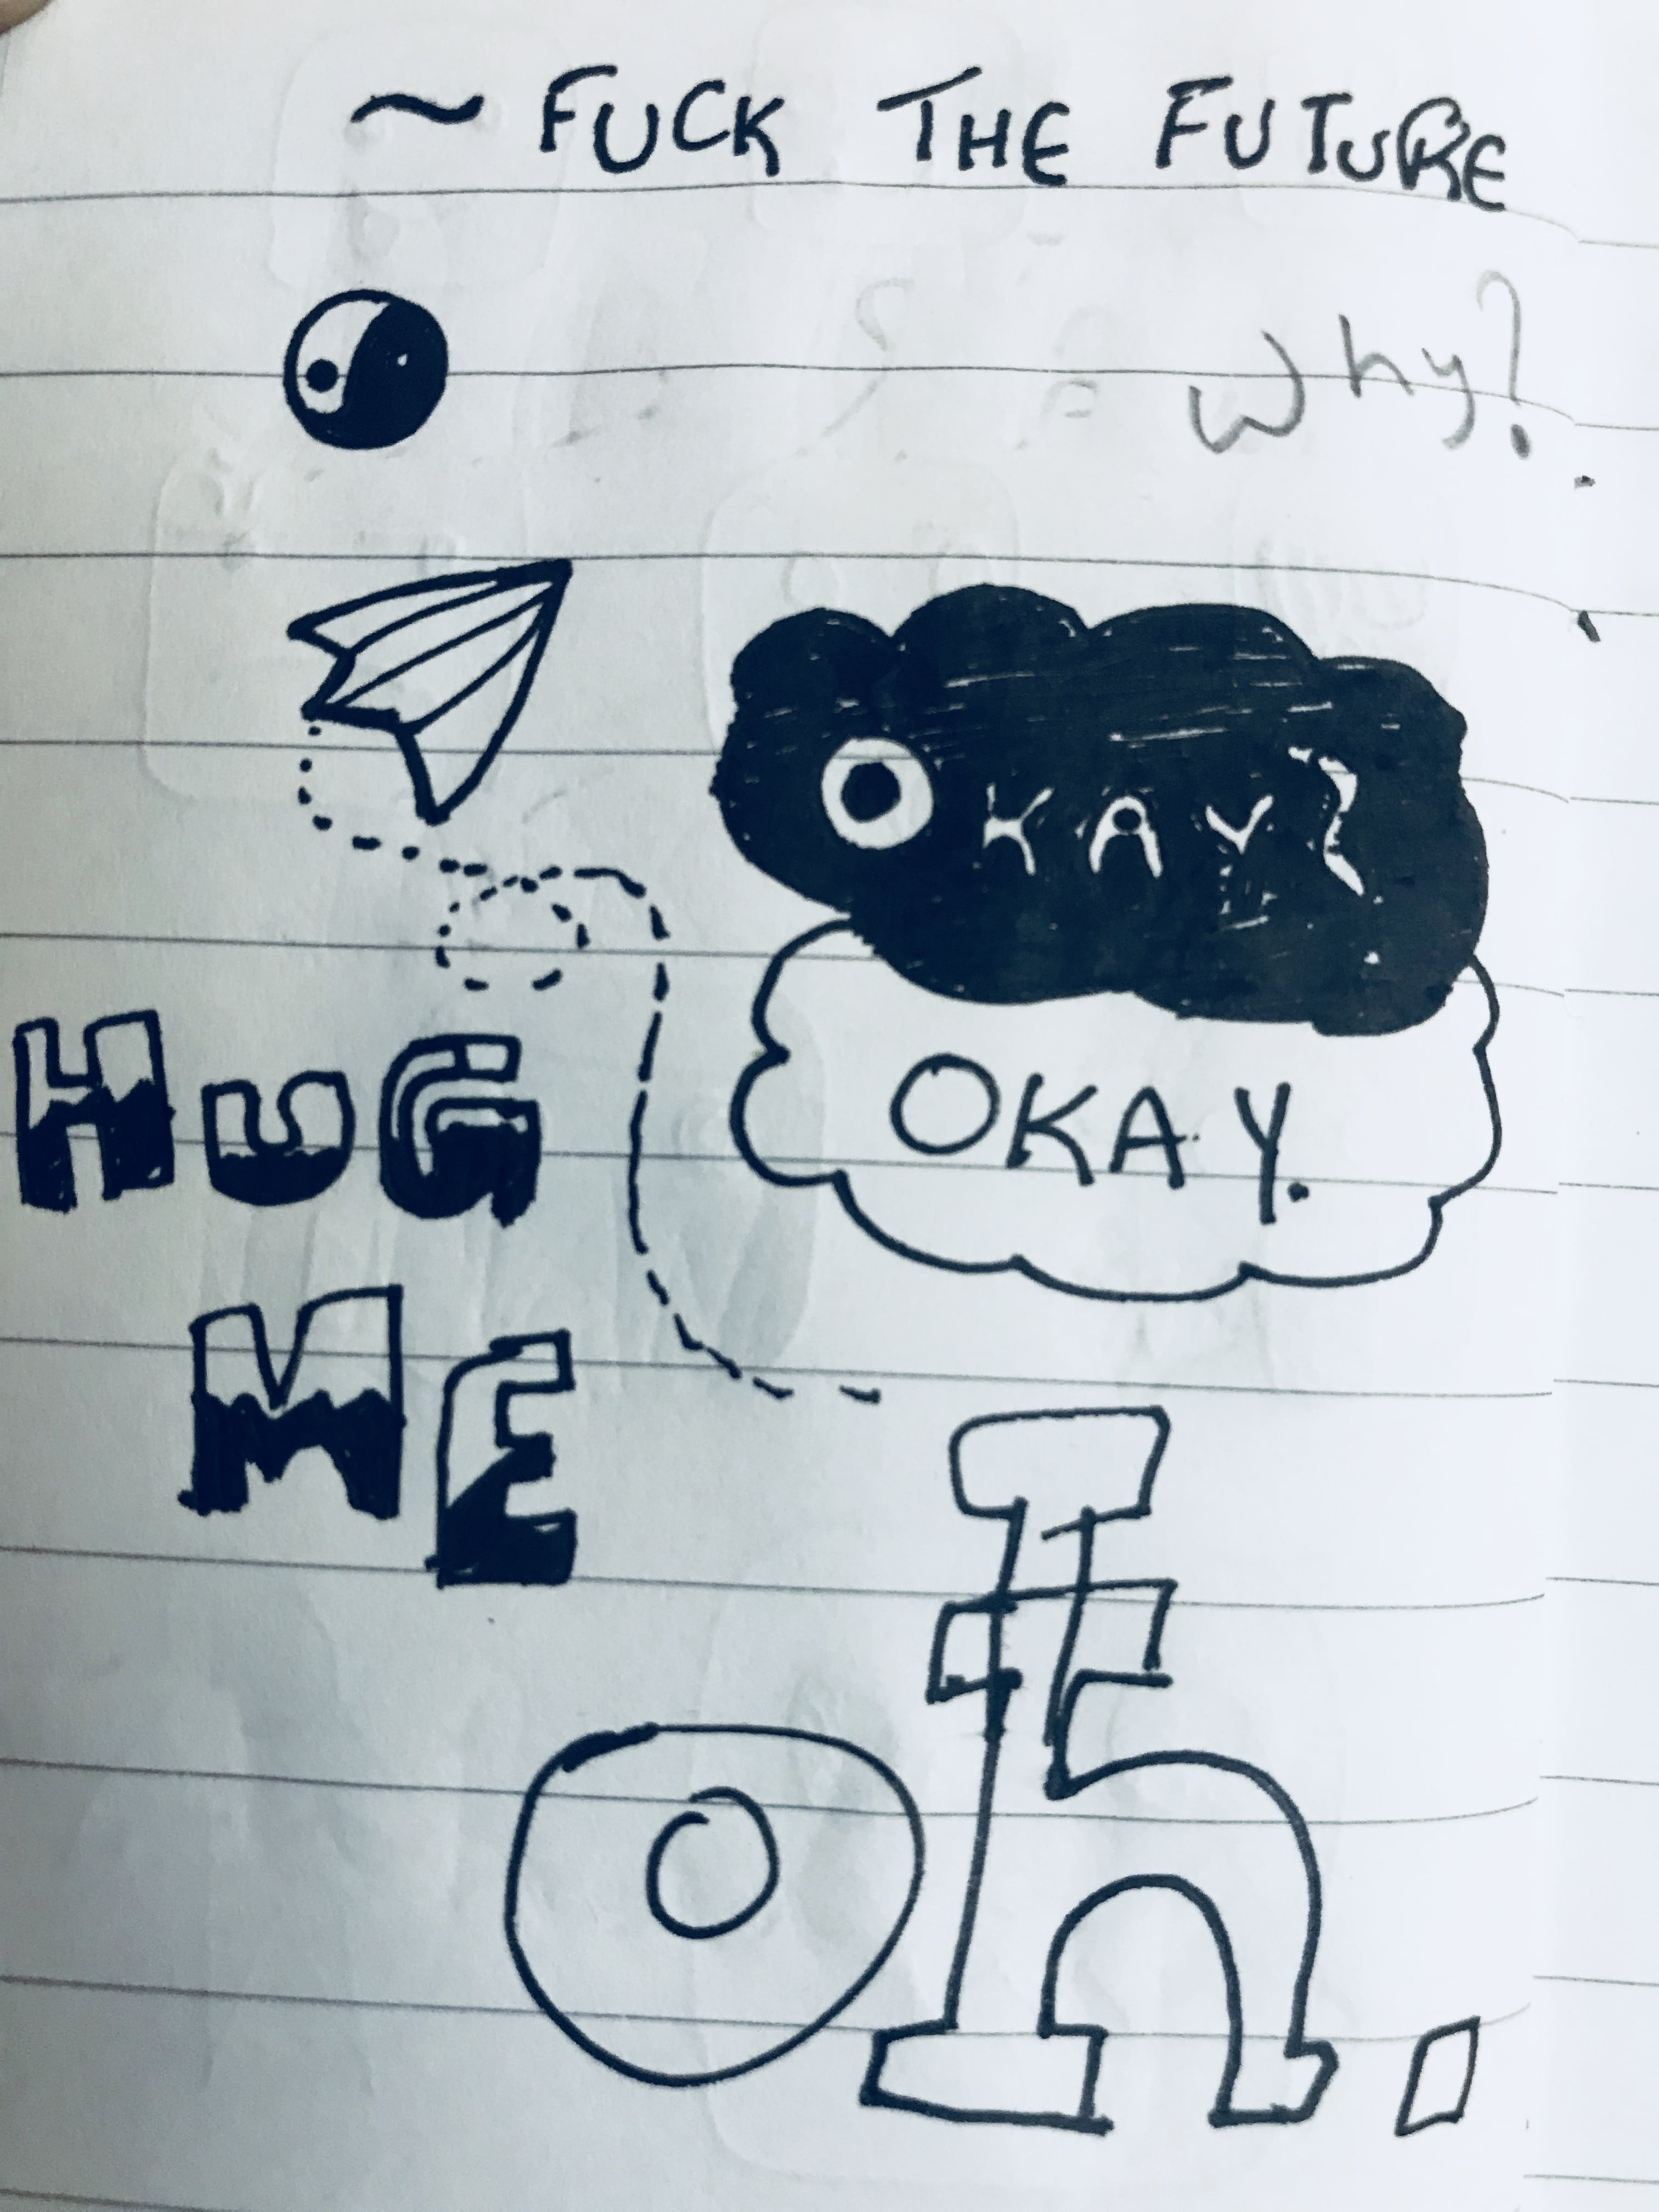 ~ FUCK THE FUTURE
Why?
OKAY?
OKAY.
HUG
ME
oh.